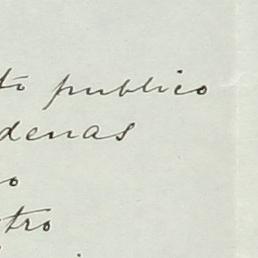 to publico
denas
o
tro